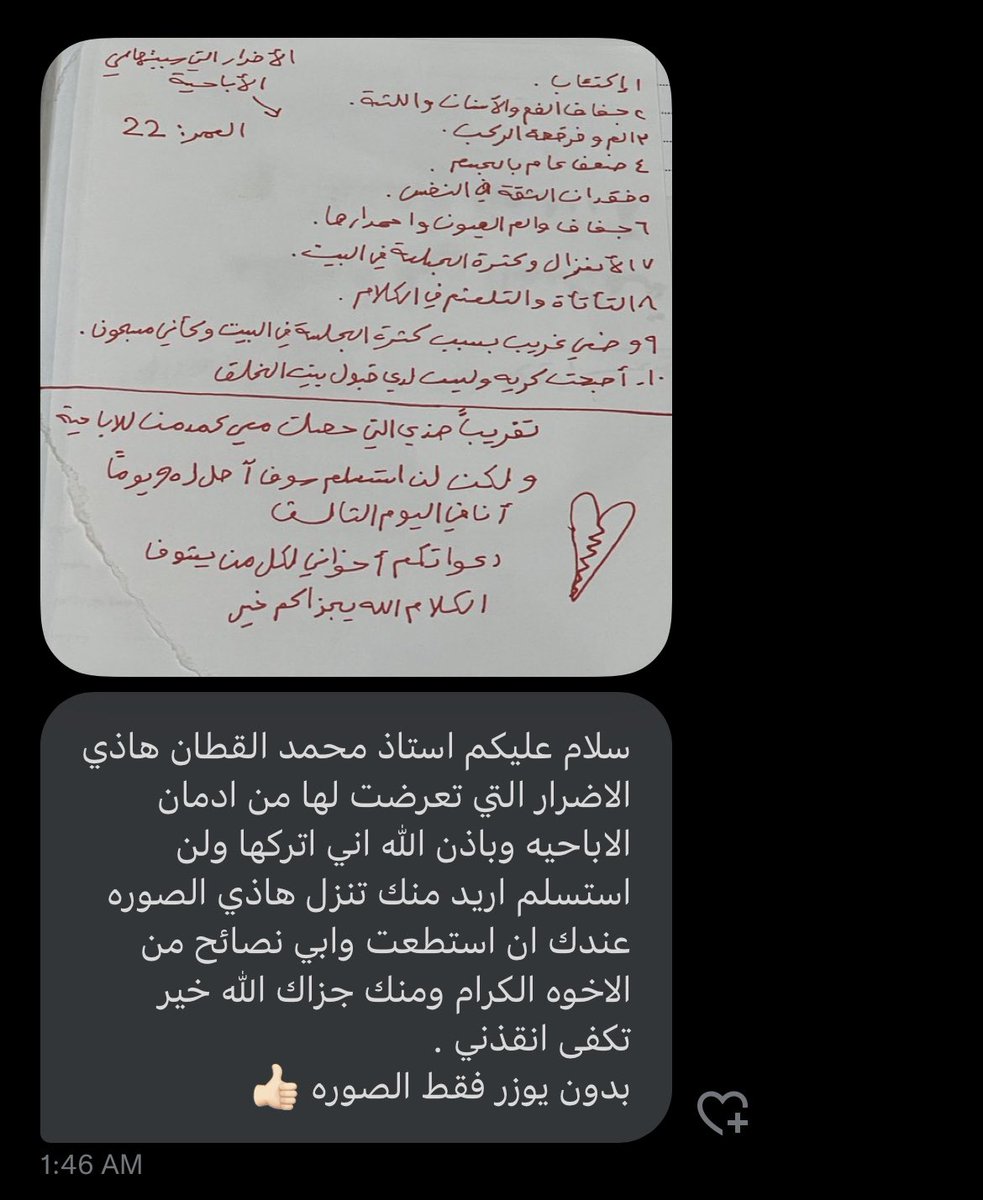 الأضرار التي سببتها لي
الأباحية
العمر: 22
١ إكتئاب .
٢ جفاف الفم والأسنان واللثة .
٣ الم و فرقعة الركب .
٤ ضعف عام بالجسم .
٥ فقدان الثقة في النفس .
٦ جفاف والم العيون واحمرارها .
٧ الأنعزال وكثرة الجلسة في البيت .
٨ التأتأة والتلعثم في الكلام .
٩ وضعي غريب بسبب كثرة الجلسة في البيت وكأني مسجون .
١٠. أصبحت كريه وليست لدي قبول بين الخلق
تقريباً هذي التي حصلت معي كمدمن للاباحية
ولكن لن استسلم سوف أصل لـ ٩٠ يوماً
أنا في اليوم الثالث
دعواتكم أخواني لكل من يشوف
الكلام الله يجزاكم خير
سلام عليكم استاذ محمد القطان هاذي
الاضرار التي تعرضت لها من ادمان
الاباحيه وباذن الله اني اتركها ولن
استسلم اريد منك تنزل هاذي الصوره
عندك ان استطعت وابي نصائح من
الاخوه الكرام ومنك جزاك الله خير
تكفى انقذني .
بدون يوزر فقط الصوره 👍🏻
1:46 AM